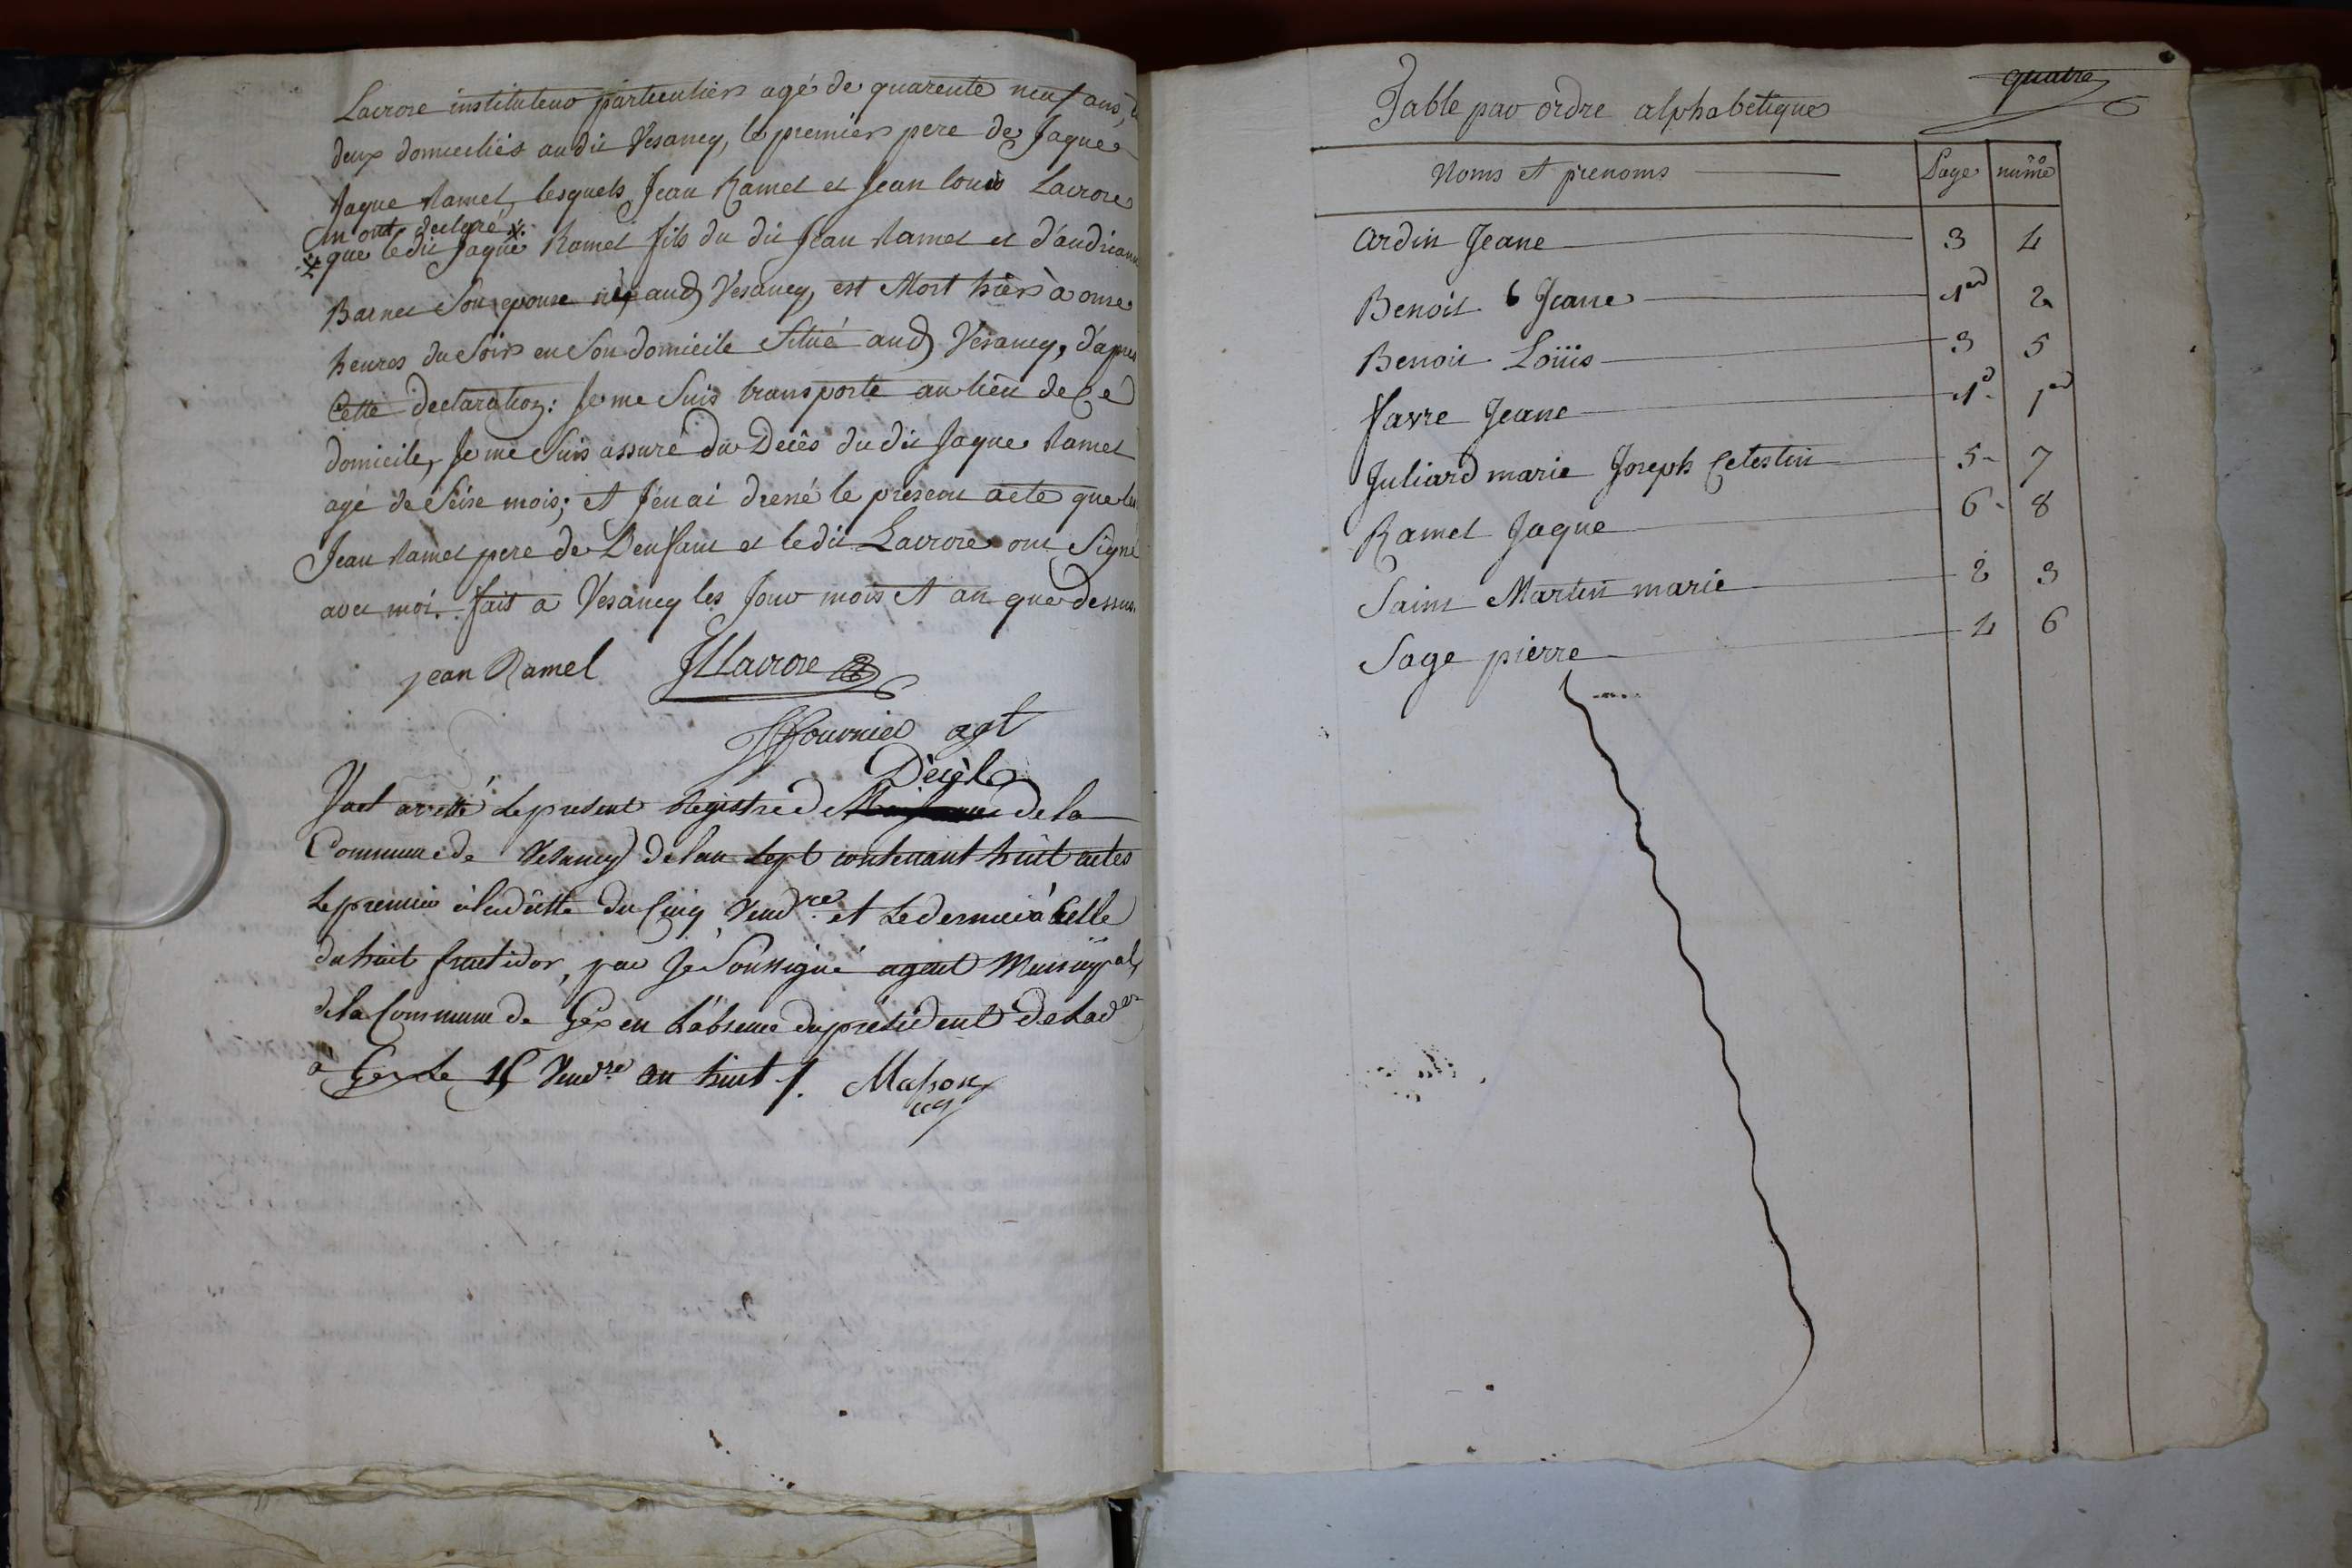 Lacroze instituteur particulier agé de quarente neuf ans,
deux domiciliés audit Vesancy, le premier pere de Jaque
Jaque Ramel, lesquels Jean Ramel et Jean louis Lacroze
m'ont declaré *
* que le dit Jaque Ramel fils du dit Jean Ramel et d'andriane
Barnet Son epouse né aud Vesancy, est Mort hier à onze
heures du Soir en Son domicile Situé aud Vesancy, d'apres
Cette declaration: Je me Suis transporté au lieu de Ce
domicile, Je me Suis assuré du Decès du dit Jaque Ramel
agé de Seise mois; et J'en ai dressé le present acte que le
Jean Ramel pere de L'enfant et le dit Lacroze ont Signé
avec moi. fait a Vesancy les Jour mois et an que dessus.
jean Ramel JLLacroze
JFfournier agt
Décés
Fait arretté Le present Registre d de la
Commune de Vesancy de lan sept contenant huit actes
Le premier à la datte du Cinq Vendre et Le dernier à Celle
du huit fructidor, par Je Soussigné agent Municipal
de la Commune de Gex en L'absence du president de Lad
à Gex Le 15 Vendre an huit /. Masson
quatre
Table par ordre alphabetique
Noms et prenoms Page numo
Ardin Jeane 3 4
Benoit Jeane 1er 2
Benoit Loüis 3 5
favre Jeane 1er 1er
Juliard marie Joseph Celestin 5 7
Ramel Jaque 6 8
Saint Martin marie 2 3
Sage pierre 4 6